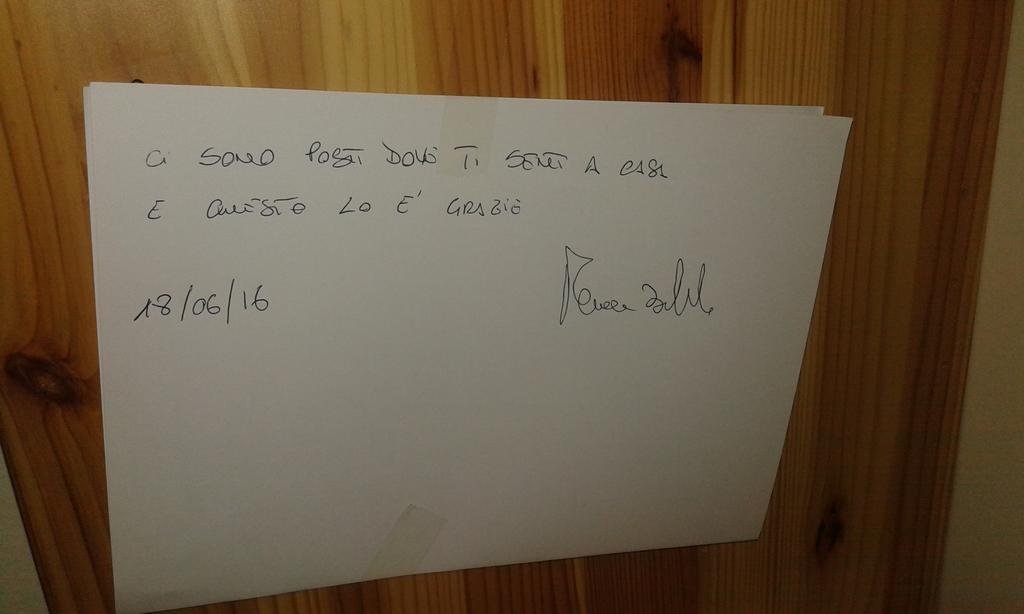 CI SONO POSTI DOVE TI SENTI A CASA
E QUESTO LO E' GRAZIE
18/06/16